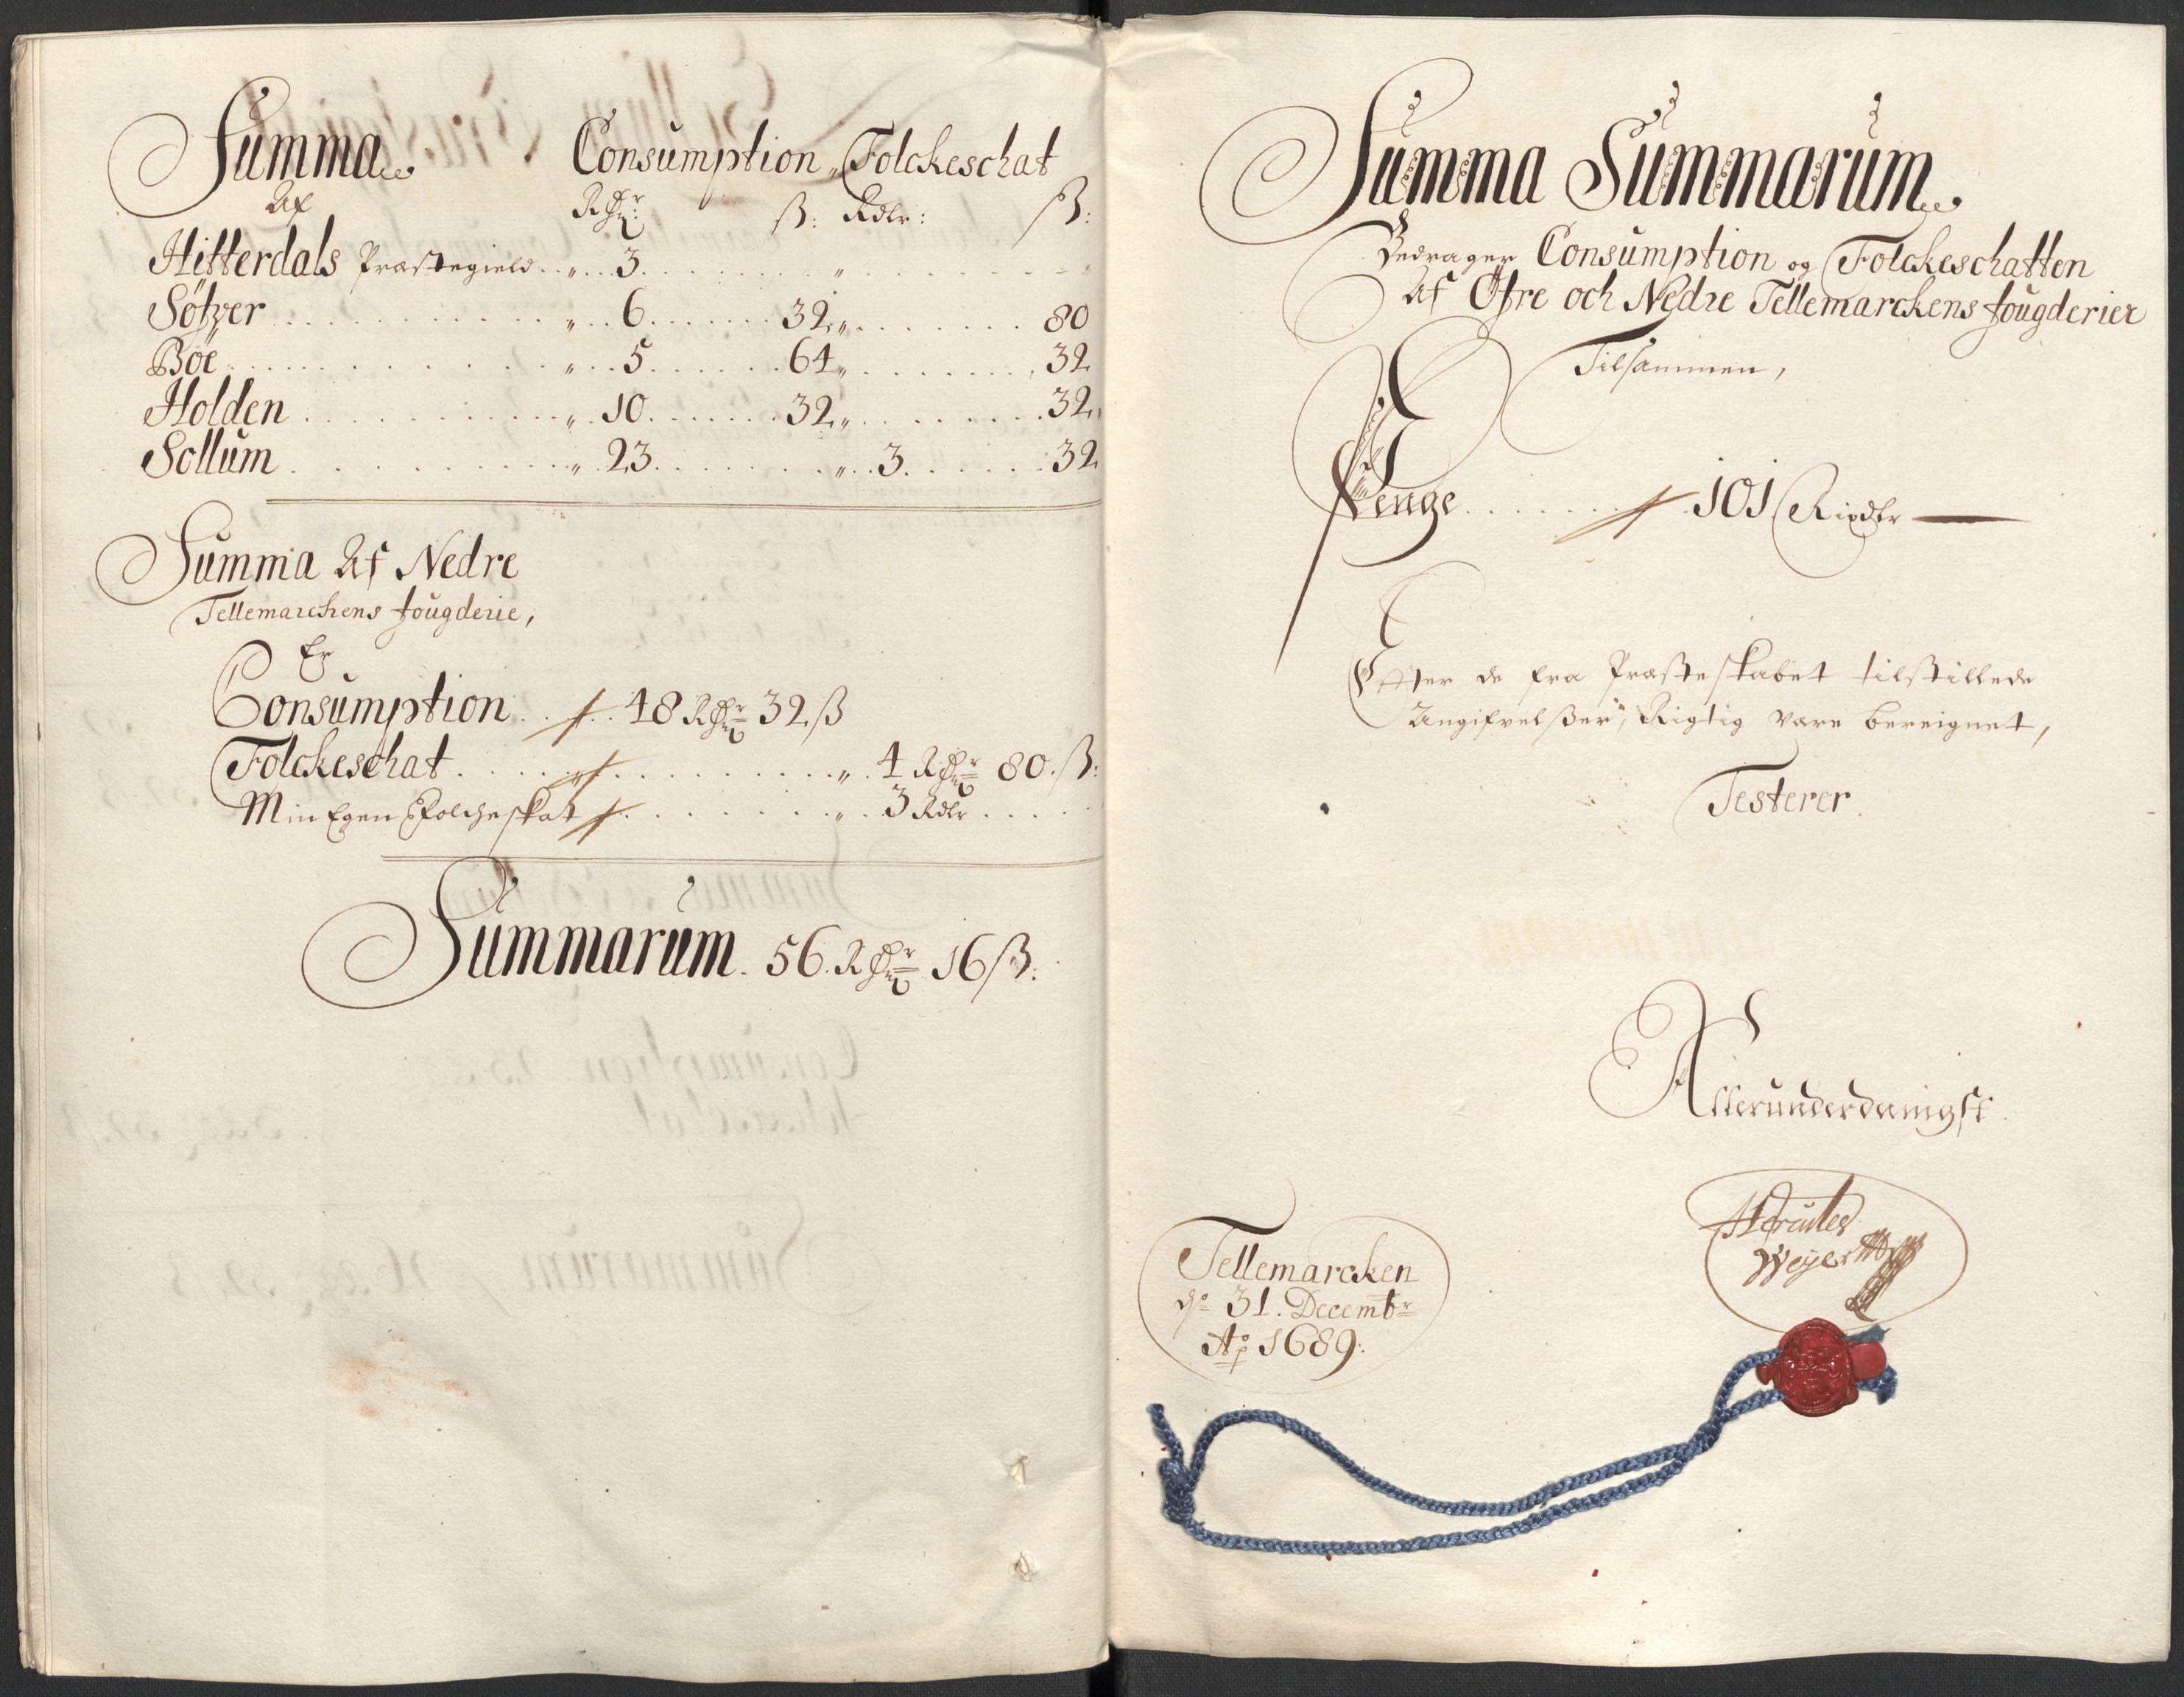 Summa Consumption, Folckeschat
Af Rdr: ß: Rdlr: ß:
Hitterdals Præstegield. . „ . . 3. . . . . . . . „ . . . . . . . . „
Söfver . . . . . . . . . . „ . . 6. . . . . . 32 „ . . . . . . . . 80
Böe . . . . . . . . . . . . „ . . 5. . . . . . 64 „ . . . . . . . . 32
Holden . . . . . . . . . . „ . 10. . . . . . 32 „ . . . . . . . . 32
Sollum . . . . . . . . . . „ . 23. . . . . . . . „ . . 3. . . . . . 32
Summa Af Nedre
Tellemarckens fougderie,
Er
Consumption . . . . 48 Rdr 32 ß
Folckeschat . . . . . . . . . . . . . „ . 4 Rdr 80. ß:
Min Egen Folcheskat . . . . . . . . „ . 3 Rdlr . . . .
Summarum. 56. Rdr 16 ß:
Summa Summarum
Bedrager Consumption og Folckeschatten
Af Öfre och Nedre Tellemarckens fougderier
Tilsammen,
Penge . . . . . . . 101 Rixdlr —
Efter de fra Præsteskabet tilstillede
Angifvelßer, Rigtig være bereignet,
Testerer.
Allerunderdanigst
Hercules
Weyer
Tellemarcken
dº 31. Decembr
Aº 1689: